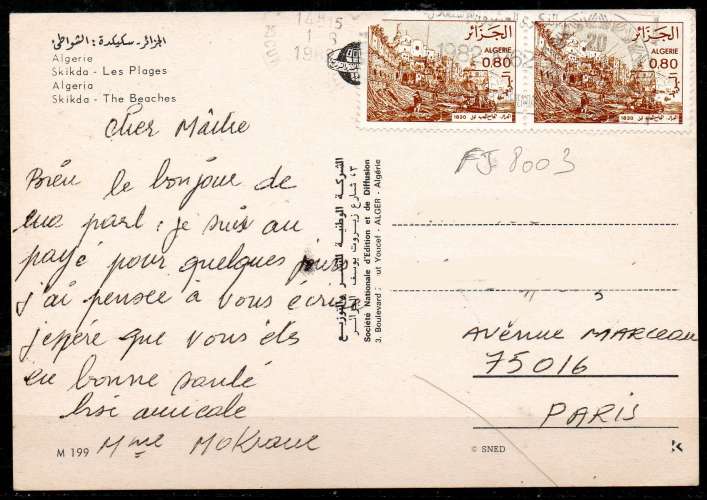 الجزائر - سكيكدة : الشواطئ
Algerie
Skikda - Les Plages
Algeria
Skikda - The Beaches
Cher Maître
Bien le bonjour de
ma part : je suis au
payé pour quelques jours
j'ai pensee à vous écrire
j'epère que vous êts
en bonne santé
bisi amicale
Mme Mokrane
M 199
الشركة الوطنية للنشر والتوزيع
٣، شارع زيروت يوسف الجزائر
Société Nationale d'Edition et de Diffusion
3, Boulevard ut Youcef - ALGER - Algérie
1982
الجزائر
ALGERIE
0.80
1830
الجزائر
ALGERIE
0.80
1830
20
FJ 8003
AVENUE MARCEAU
75016
PARIS
© SNED